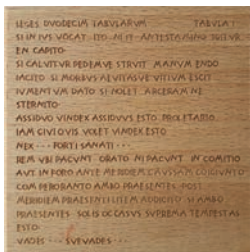 LEGES DVODECIM TABVLARVM TABVLA I
SI IN IVS VOCAT ITO NI IT ANTESTAMINO IGITVR
EN CAPITO
SI CALVITVR PEDEMVE STRVIT MANVM ENDO
IACITO SI MORBVS AEVITASVE VITIVM ESCIT
IVMENTVM DATO SI NOLET ARCERAM NE
STERNITO
ASSIDVO VINDEX ASSIDVVS ESTO PROLETARIO
IAM CIVI QVIS VOLET VINDEX ESTO
NEX ··· FORTI SANATI ···
REM VBI PACVNT ORATO NI PACVNT IN COMITIO
AVT IN FORO ANTE MERIDIEM CAVSSAM COICIVNTO
COM PERORANTO AMBO PRAESENTES POST
MERIDIEM PRAESENTI LITEM ADDICITO SI AMBO
PRAESENTES SOLIS OCCASVS SVPREMA TEMPESTAS
ESTO
VADES ··· SVBVADES ···